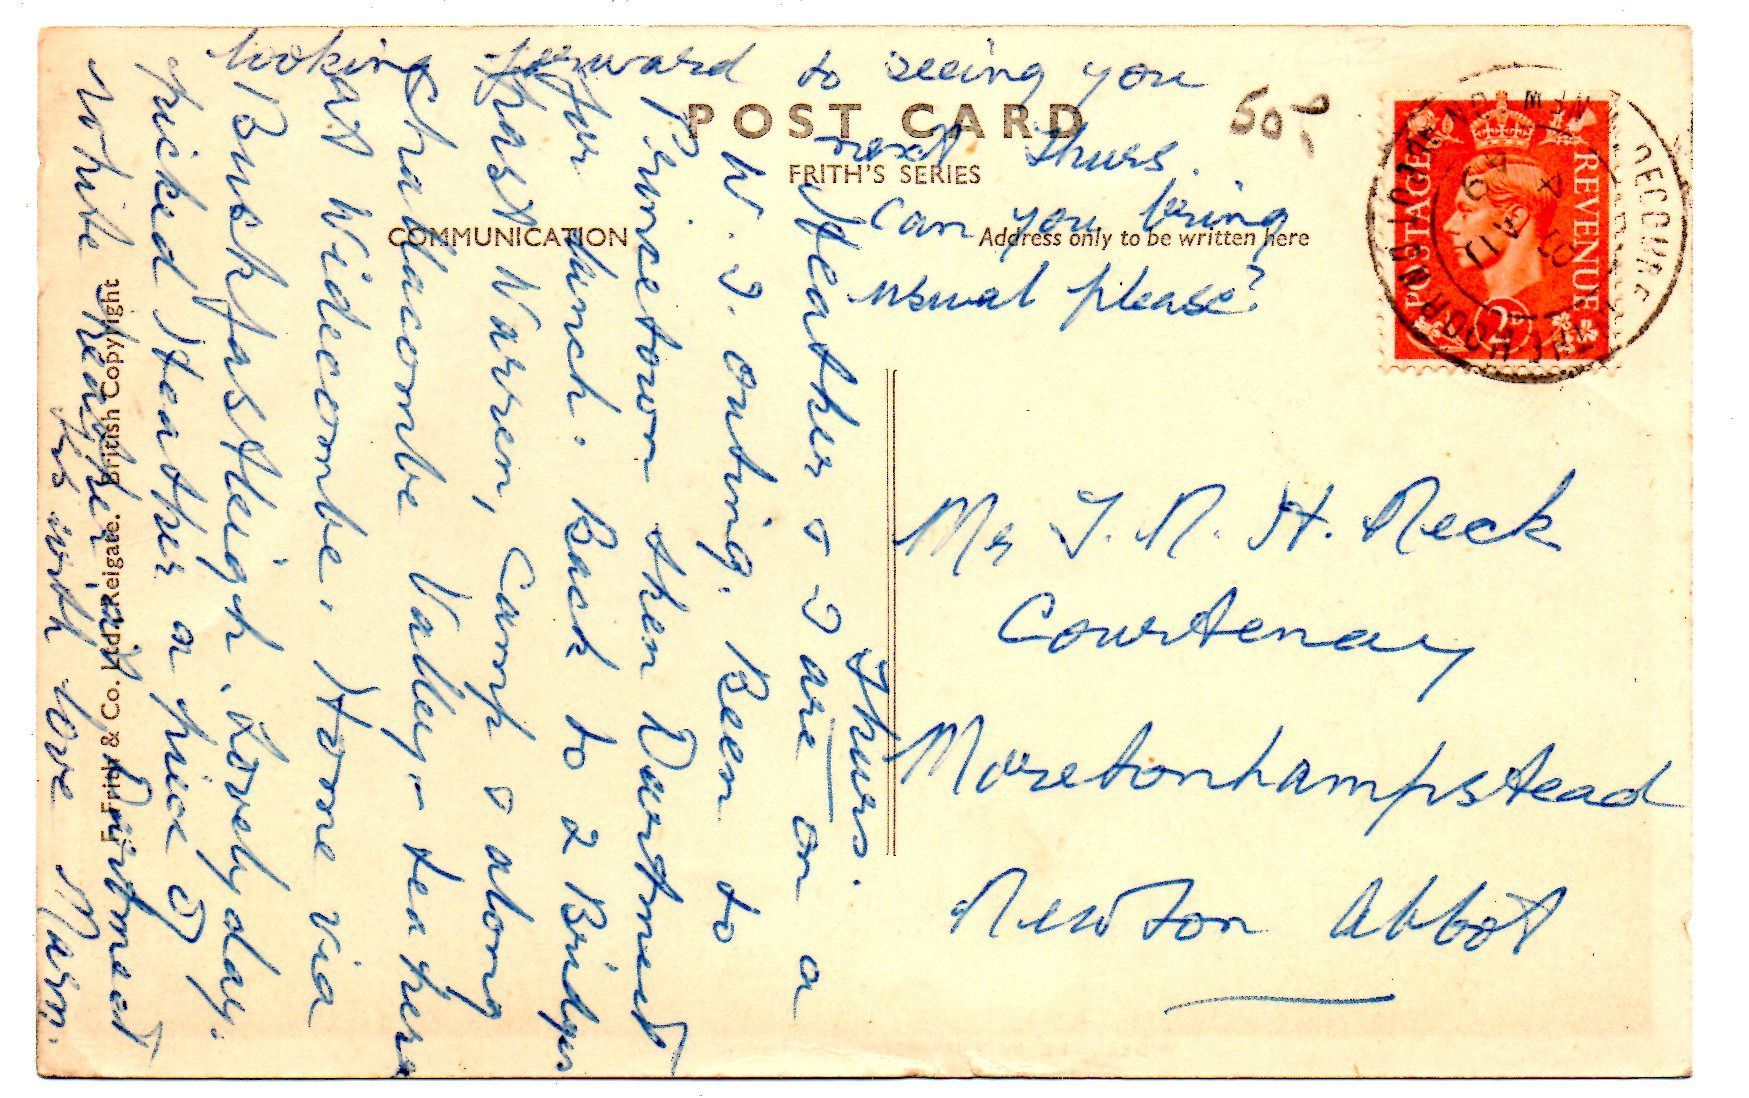 Thurs.
Heather & I are on a
W. I. outing. Been to
Princetown then Dartmeet
for lunch. Back to 2 Bridges
past Warren, Camp & along
Challacombe Valley - tea here
at Widecombe. Home via
Buckfastleigh. Lovely day.
Picked Heather a piece of
white heather at Dartmeet
with love Mam.
looking forward to seeing you
next Thurs.
Can you bring
usual please?
POST CARD
FRITH'S SERIES
COMMUNICATION
Address only to be written here
F. Frith & Co. Ltd. Reigate. British Copyright
50p
POSTAGE REVENUE
2½
Mr J. N. H. Neck
Courtenay
Moretonhampstead
Newton Abbot